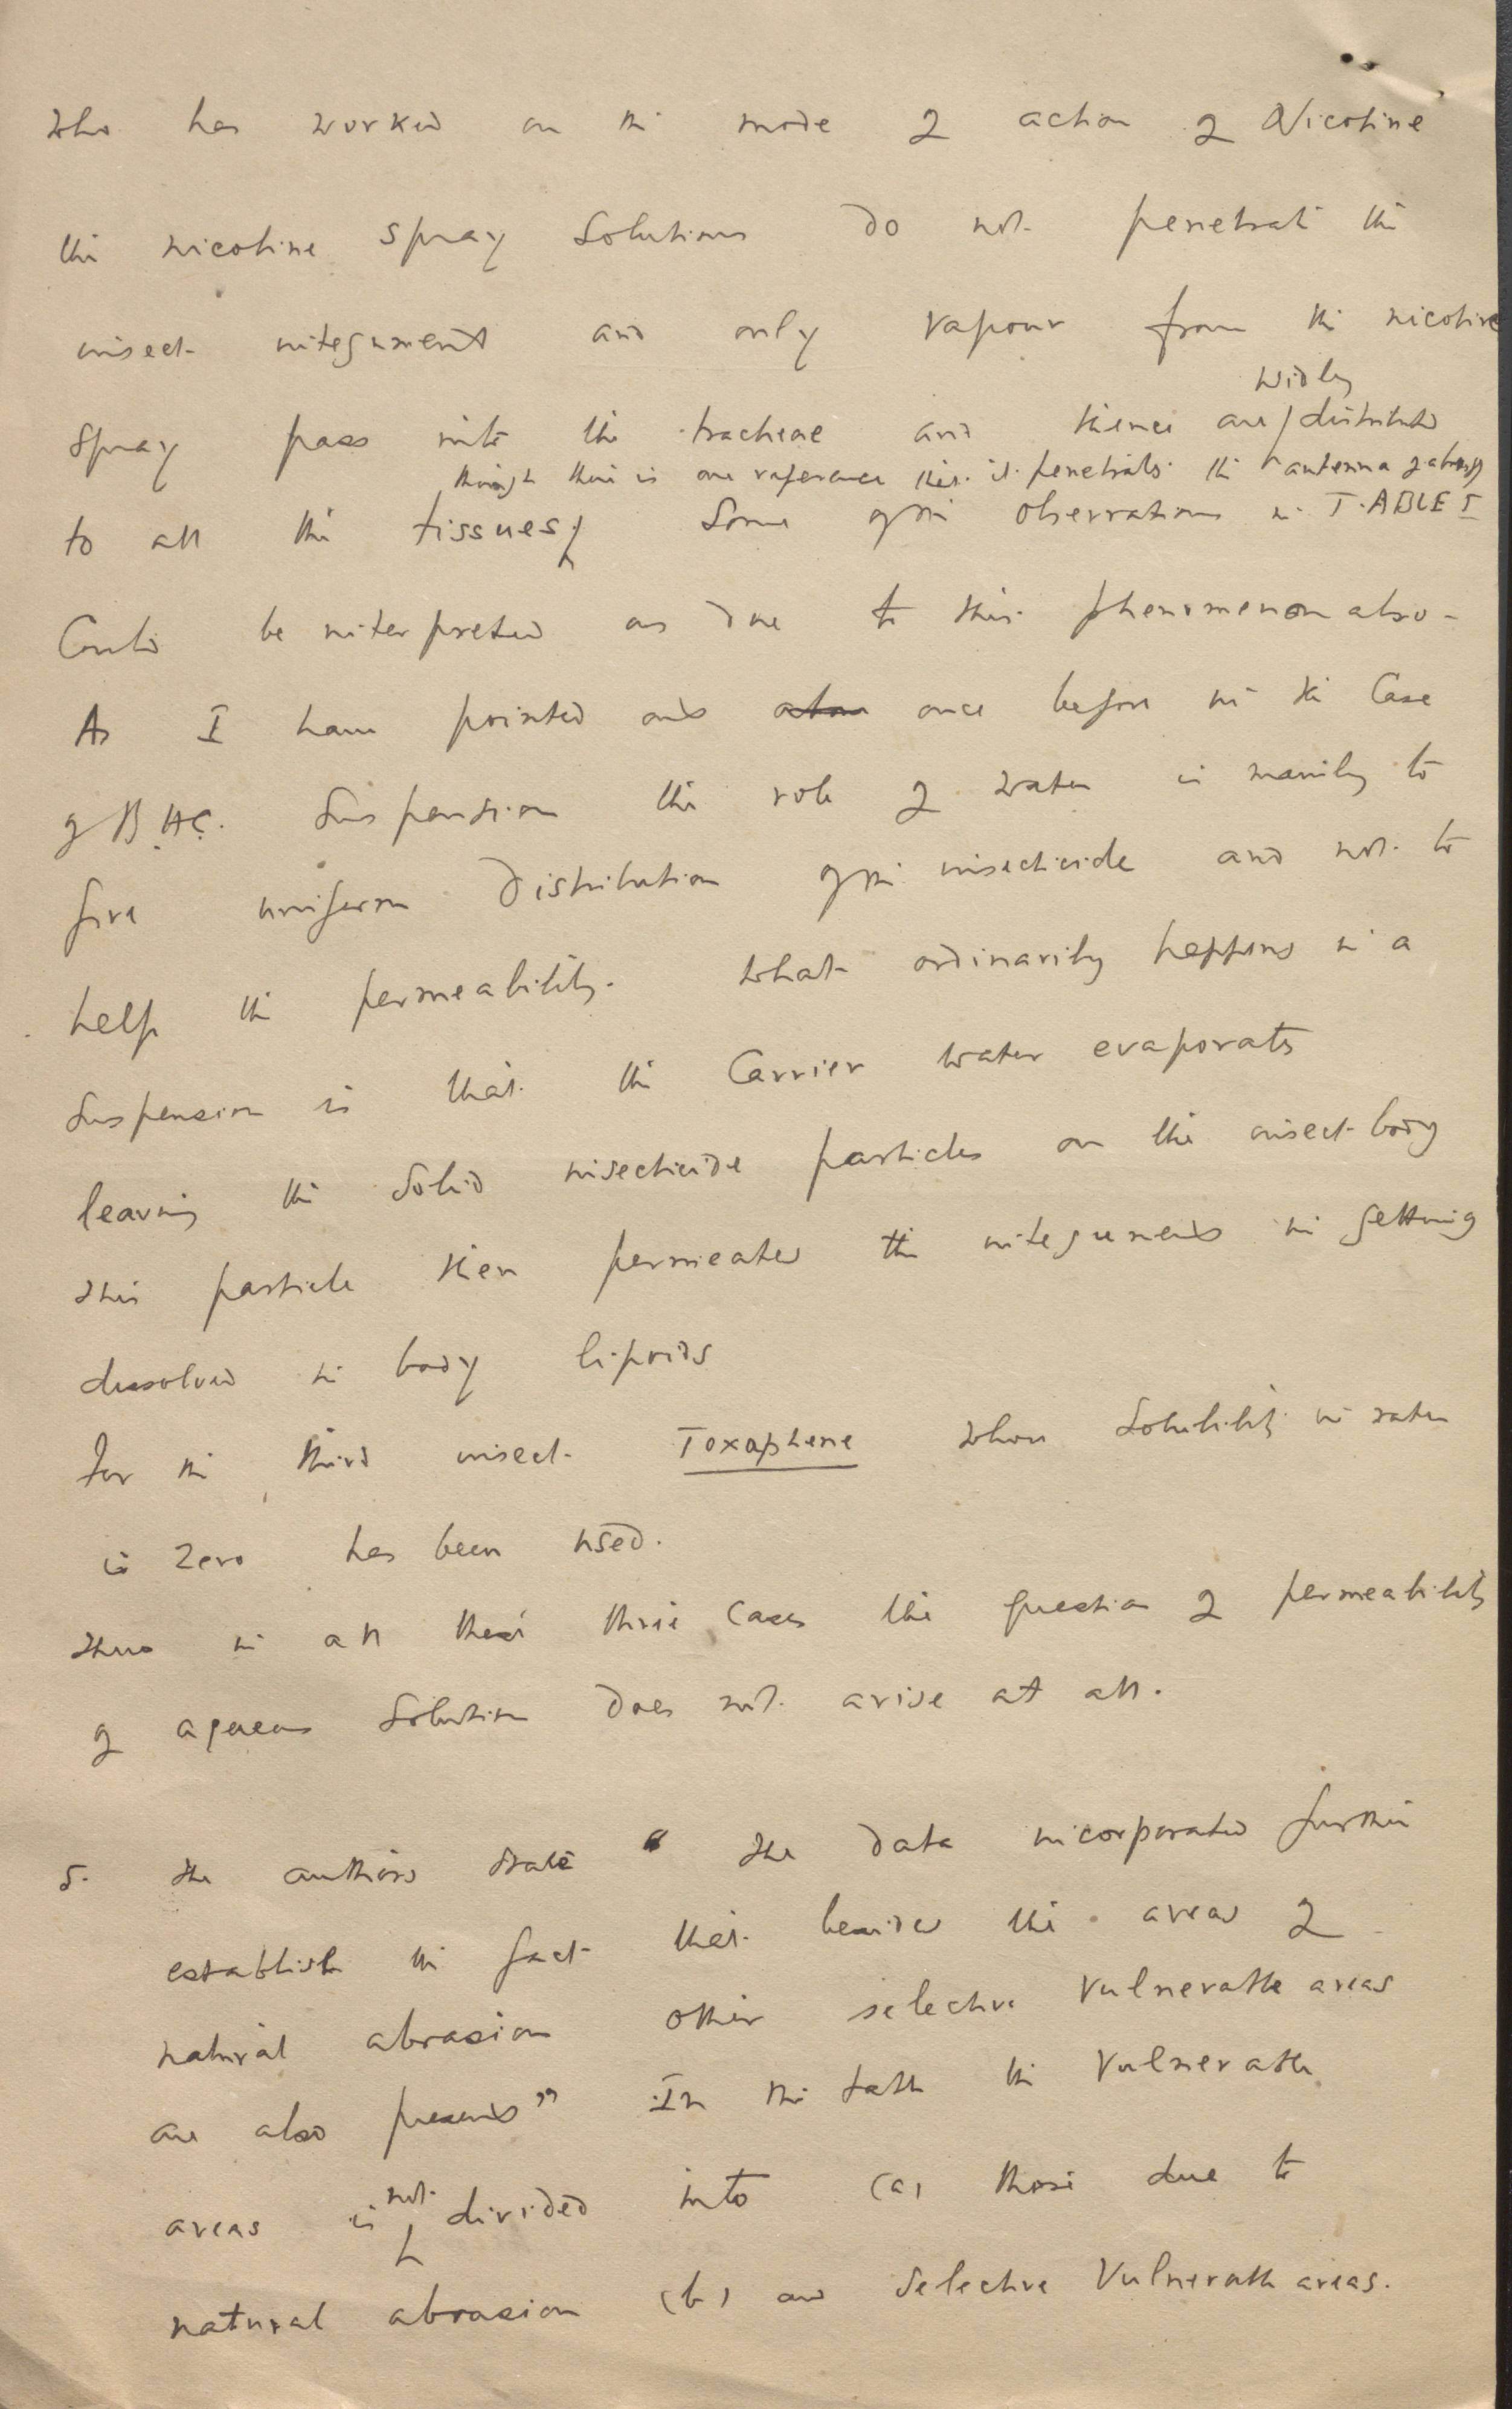 who has worked on the mode of action of Nicotine
the nicotine spray solutions do not penetrate the
insect integument and only vapour from the nicotine
widely
spray pass into the tracheae and thence are / distributed
though there is one reference that it penetrates the antenna of
to all the tissues, Some of the observations in TABLE I
Could be interpreted as due to this phenomenon also -
As I have pointed out once before in the Case
of B.H.C. Suspension the role of water is mainly to
give uniform distribution of the insecticide and not to
help the permeability. What ordinarily happens in a
Suspension is that the Carrier water evaporates
leaving the solid insecticide particles on the insect body
This particle then permeates the integument in getting
dissolved in body lipoids
For the third insect Toxaphene whose solubility in water
is Zero has been used.
Thus in all these three Cases the question of permeability
of aqueous solution does not arise at all.
5. The authors state " The data incorporated further
establish the fact that besides the areas of
natural abrasion other selective vulnerable areas
are also present" In the table the vulnerable
not
areas is divided into (a) those due to
natural abrasion (b) and Selective Vulnerable areas.